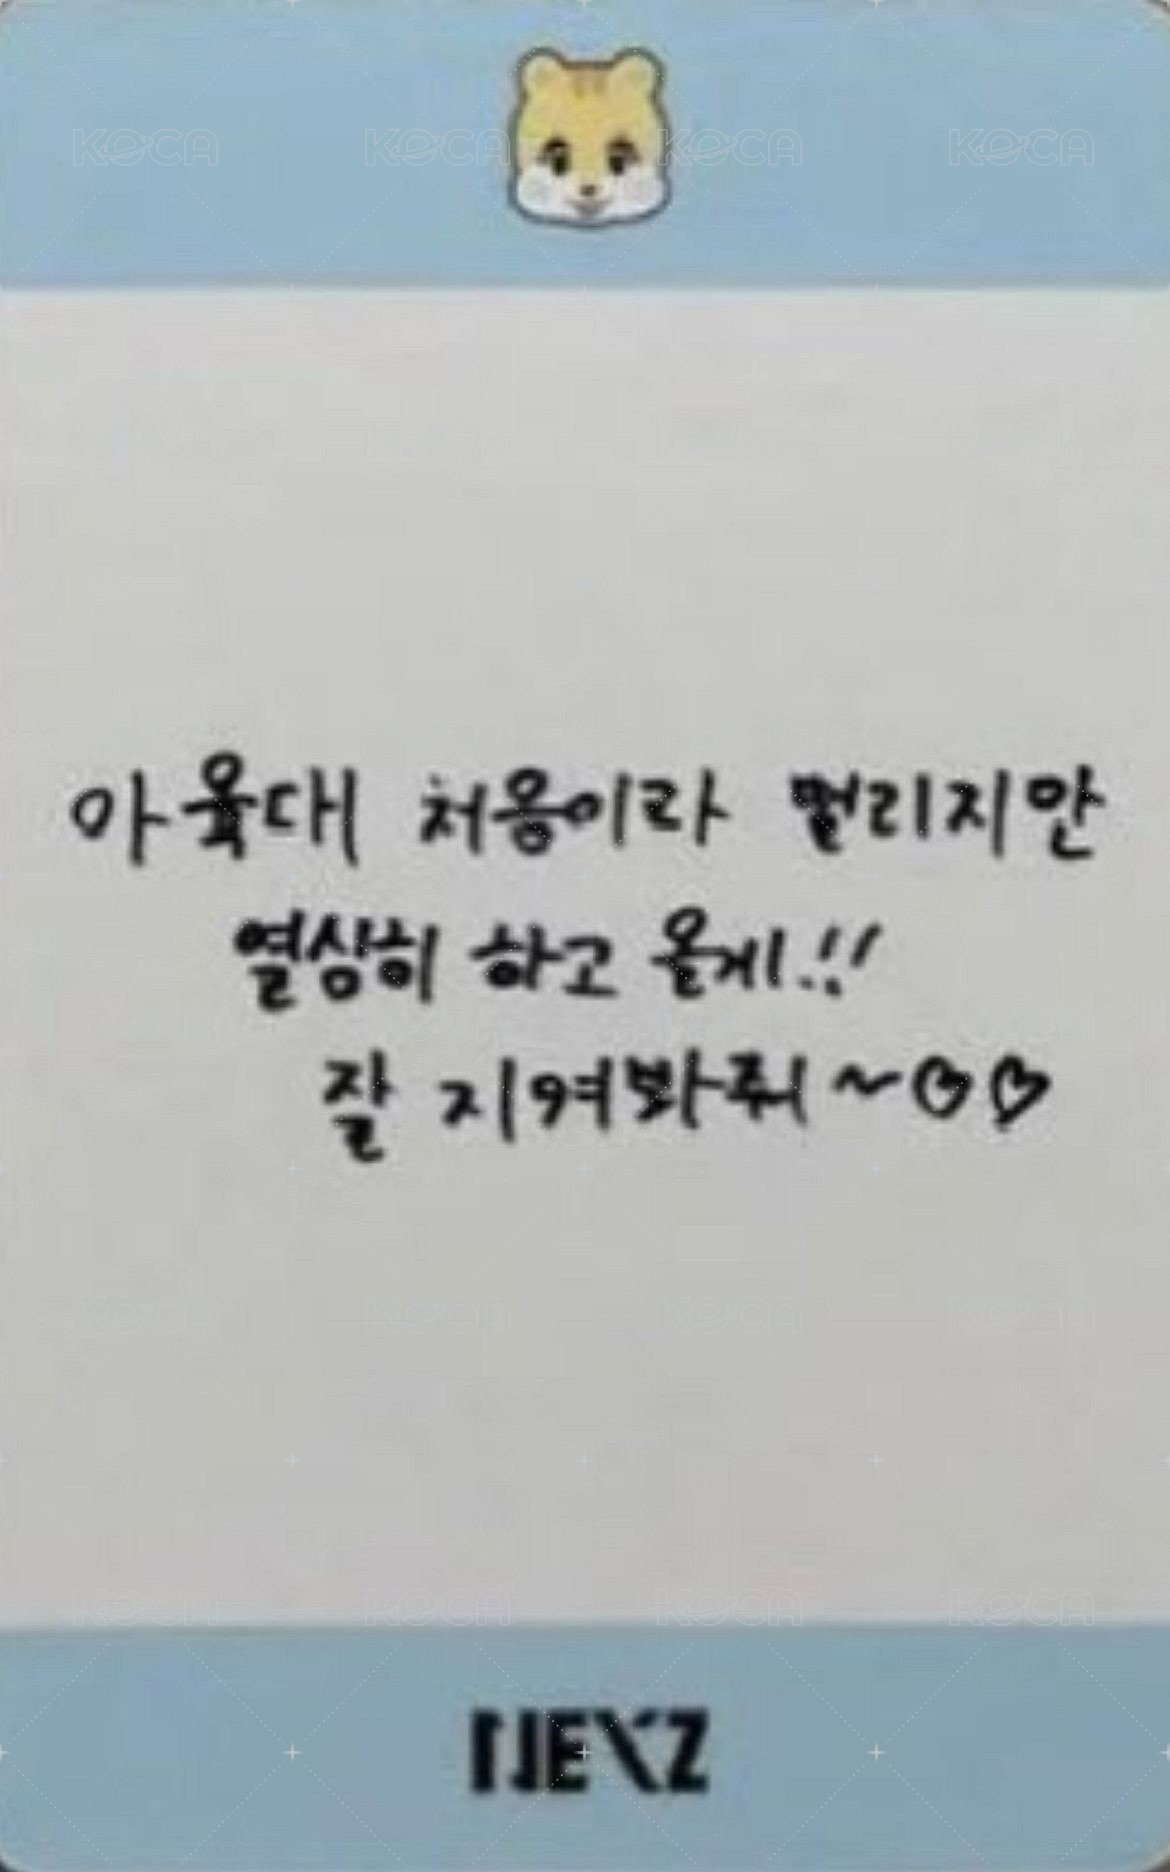 KOCA KOCA KOCA KOCA
아육대 처음이라 떨리지만
열심히 하고 올게!!
잘 지켜봐줘~♡♡
KOCA KOCA KOCA KOCA
KOCA KOCA KOCA KOCA
NEXZ